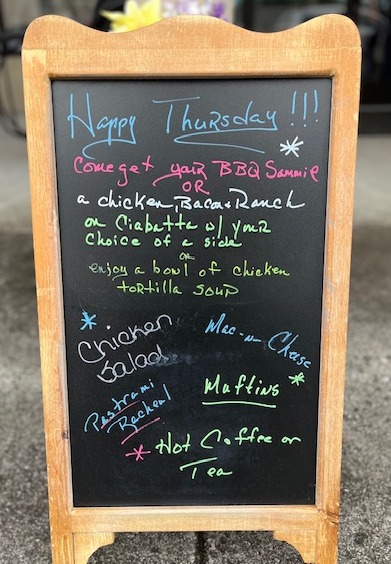 Happy Thursday!!!
Come get your BBQ Sammie
OR
a chicken, Bacon & Ranch
on Ciabatta w/ your
choice of a side
or
enjoy a bowl of chicken
tortilla soup
Chicken
Salad
Mac-n-Cheese
Pastrami
Rachel
Muffins
Hot Coffee or
Tea